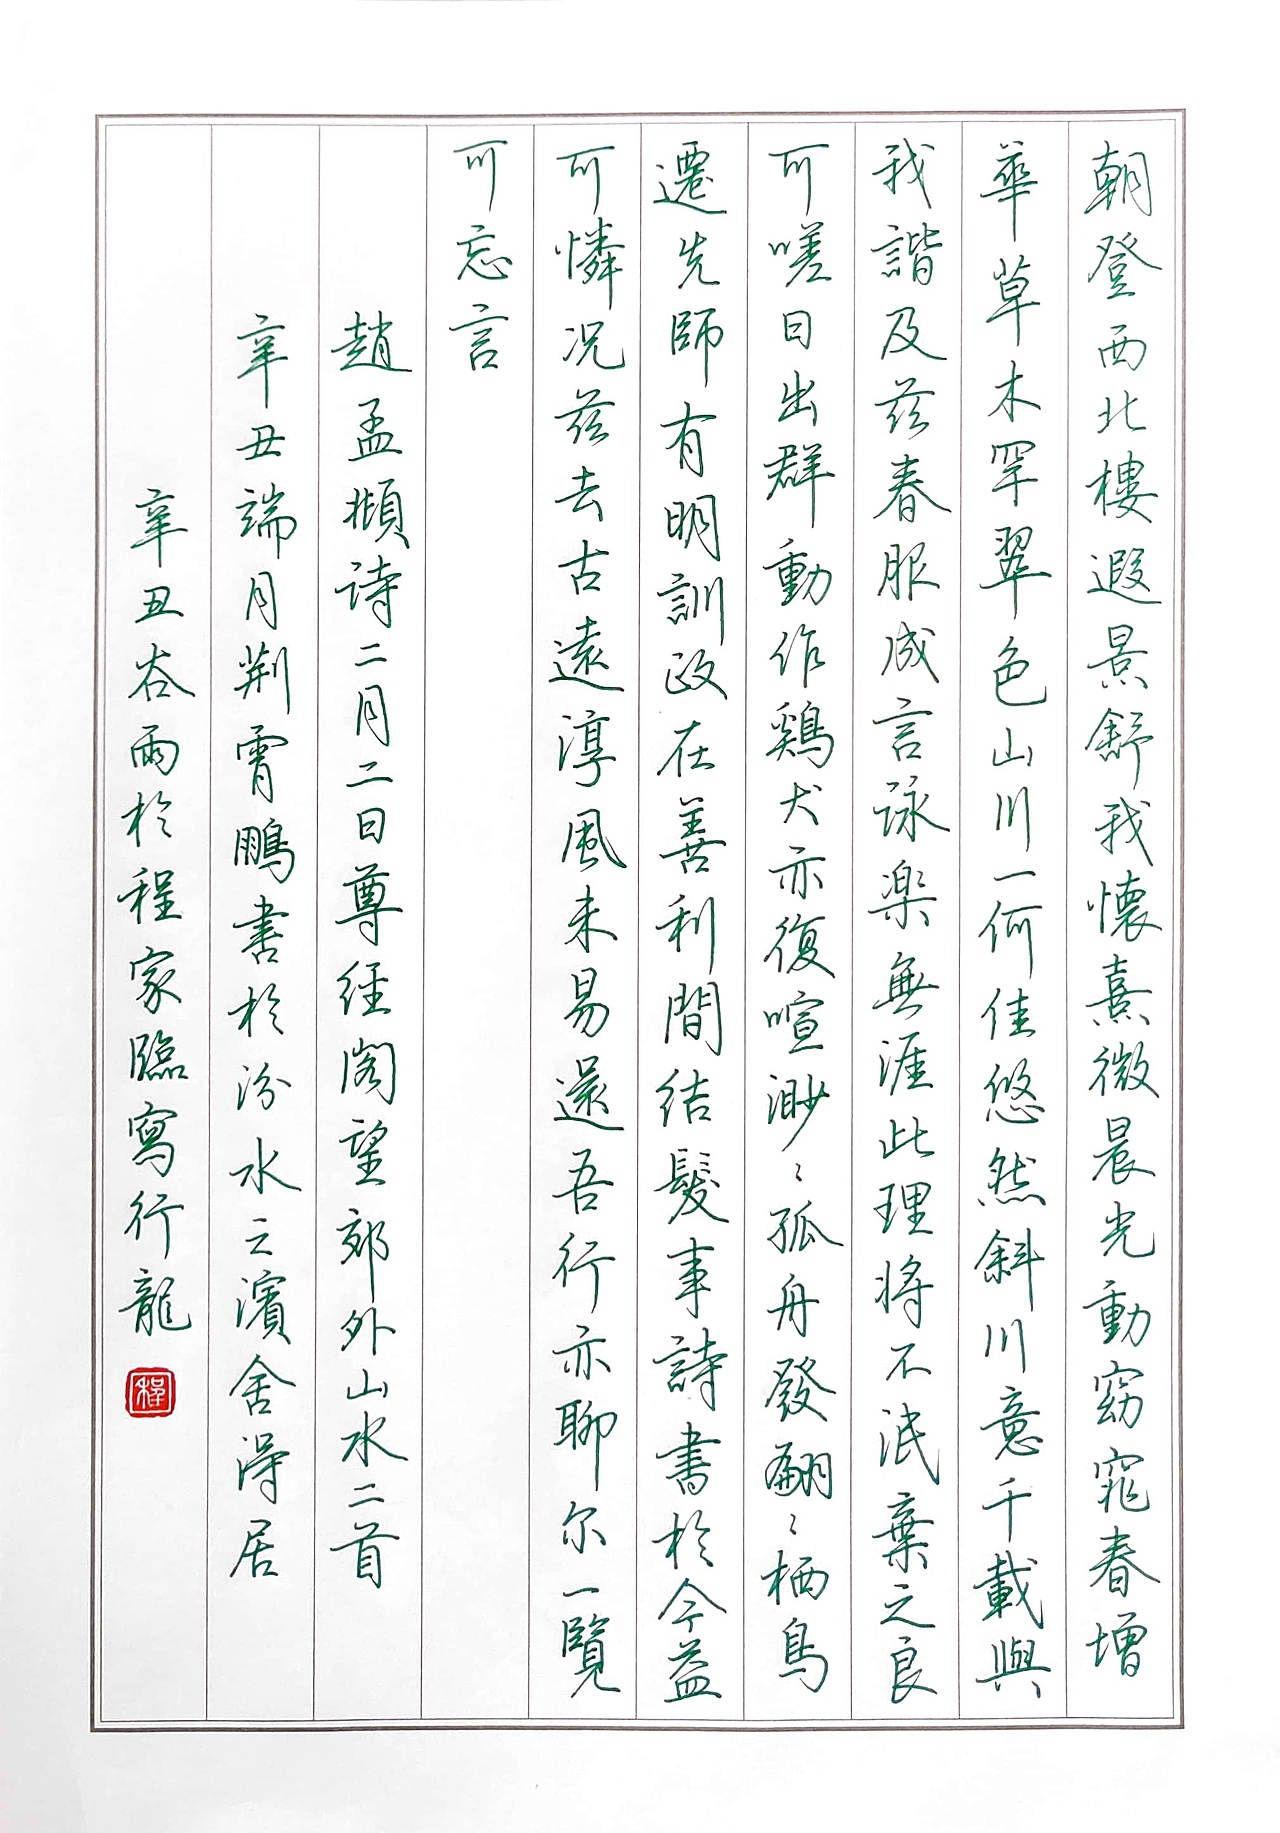 朝登西北樓遐景舒我懷熹微晨光動窈窕春增
華草木罕翠色山川一何佳悠然斜川意千載與
我諧及茲春服成言詠楽無涯此理將不泯棄之良
可嗟日出群動作鷄犬亦復喧渺〻孤舟發翩〻栖鳥
遷先師有明訓政在善利間結髮事詩書於今益
可憐况茲去古遠淳風未易還吾行亦聊尔一覽
可忘言
趙孟頫诗二月二日尊經阁望郊外山水二首
辛丑端月荆霄鵬書於汾水之濱舍得居
辛丑谷雨於程家臨寫行龍
程